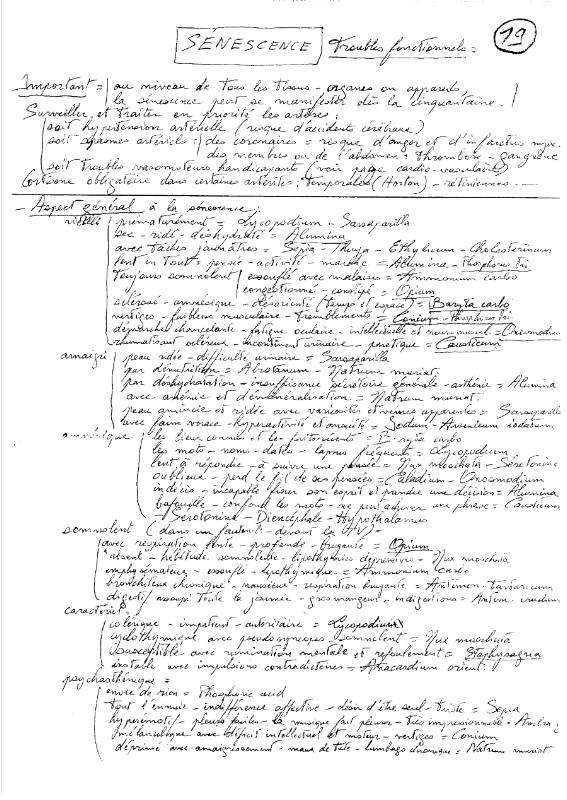 SÉNESCENCE Troubles fonctionnels = 19
Important = au niveau de tous les tissus - organes ou appareils,
la sénescence peut se manifester dès la cinquantaine.
Surveiller et traiter en priorité les artères :
soit hypertension artérielle (risque d'accidents cérébraux)
soit spasmes artériels : des coronaires = risque d'angor et d'infarctus myoc.
des membres ou de l'abdomen = thrombose - gangrène
soit troubles vasomoteurs handicapants (voir page cardio-vasculaire)
Cortisone obligatoire dans certaines artérites : temporales (Horton) - rétiniennes
- Aspect général à la sénescence :
vieilli prématurément = Lycopodium - Sarsaparilla
sec - ridé - déshydraté = Alumina
avec taches jaunâtres = Sepia - Thuya - Ethylicum - Cholesterinum
lent en tout = pensée - activité - marche = Alumina - Phosphorus tri
toujours somnolent essoufflé avec malaises = Ammonium carbo
congestionné - constipé = Opium
sclérosé - amnésique - désorienté (temps et espace) = Baryta carbo
vertiges - faiblesse musculaire - tremblements = Conium - Phosphorus tri
démarche chancelante - fatigue oculaire - intellectuelle et neuromuscul = Onosmodium
rhumatisant scléreux - incontinent urinaire - parétique = Causticum
amaigri peau ridée - difficulté urinaire = Sarsaparilla
par dénutrition = Abrotanum - Natrum muriat.
par déshydratation - insuffisance sécrétoire générale - asthénie = Alumina
avec anémie et déminéralisation = Natrum muriat.
peau amincie et ridée avec varicosités et veines apparentes = Sarsaparilla
avec faim vorace - hyperactivité et anxiété = Iodum - Arsenicum iodatum
amnésique les lieux connus et les faits récents = Baryta carbo
les mots - noms - dates - lapsus fréquents = Lycopodium
lent à répondre - à suivre une pensée = Nux moschata - Sérotonine
oublieux - perd le fil de ses pensées = Caladium - Onosmodium
indécis - incapable fixer son esprit et prendre une décision = Alumina
bafouille - confond les mots - ne peut achever une phrase = Causticum
Sérotonine - Diencéphale - Hypothalamus
somnolent (dans un fauteuil - devant la TV) =
avec respiration lente - profonde - bruyante = Opium
"absent" - hébétude somnolente - lipothymies dépressives = Nux moschata
emphysémateux - essoufflé - lipothymique = Ammonium carbo
bronchiteux chronique - nauséeux - respiration bruyante = Antimon. tartaricum
digestif assoupi toute la journée - gros mangeur - indigestions = Antim. crudum
caractériel
colérique - impatient - autoritaire = Lycopodium
cyclothymique avec pseudo syncopes somnolent = Nux moschata
susceptible avec rumination mentale et refoulement = Staphysagria
instable avec impulsions contradictoires = Anacardium orient.
psychasthénique =
envie de rien = Phosphoric acid
tout l'ennuie - indifférence affective - désir d'être seul - triste = Sepia
hyperémotif - pleurs faciles - la musique fait pleurer - très impressionnable = Ambra
mélancolique avec déficit intellectuel et moteur - vertiges = Conium
déprimé avec amaigrissement - maux de tête - lumbago chronique = Natrum muriat